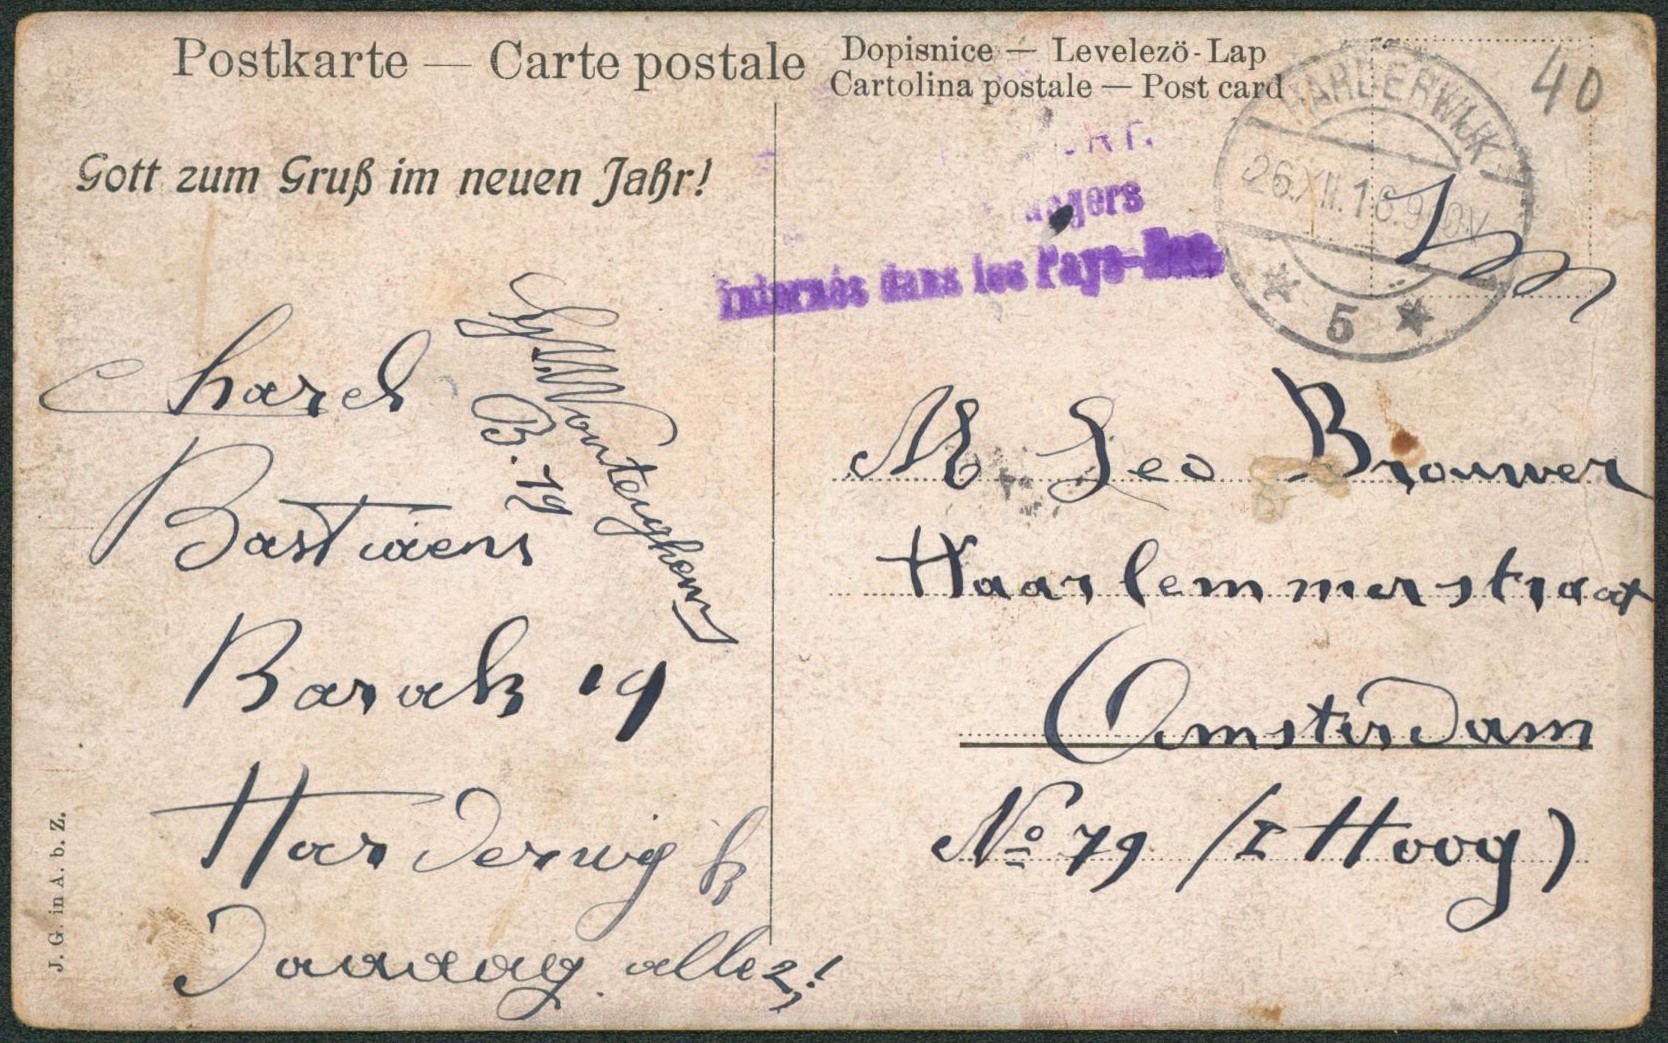 Postkarte — Carte postale
Dopisnice — Levelezö-Lap
Cartolina postale — Post card
40
HARDERWIJK
26.XII.16.9
5
Gott zum Gruß im neuen Jahr!
Internés dans les Pays-Bas
Charel
Bastiaens
Barak 19
Harderwijk
Daaaag allez!
Wouterghem
B. 19
M Leo Brouwer
Haarlemmerstraat
Amsterdam
No 79 (I Hoog)
J. G. in A. b. Z.